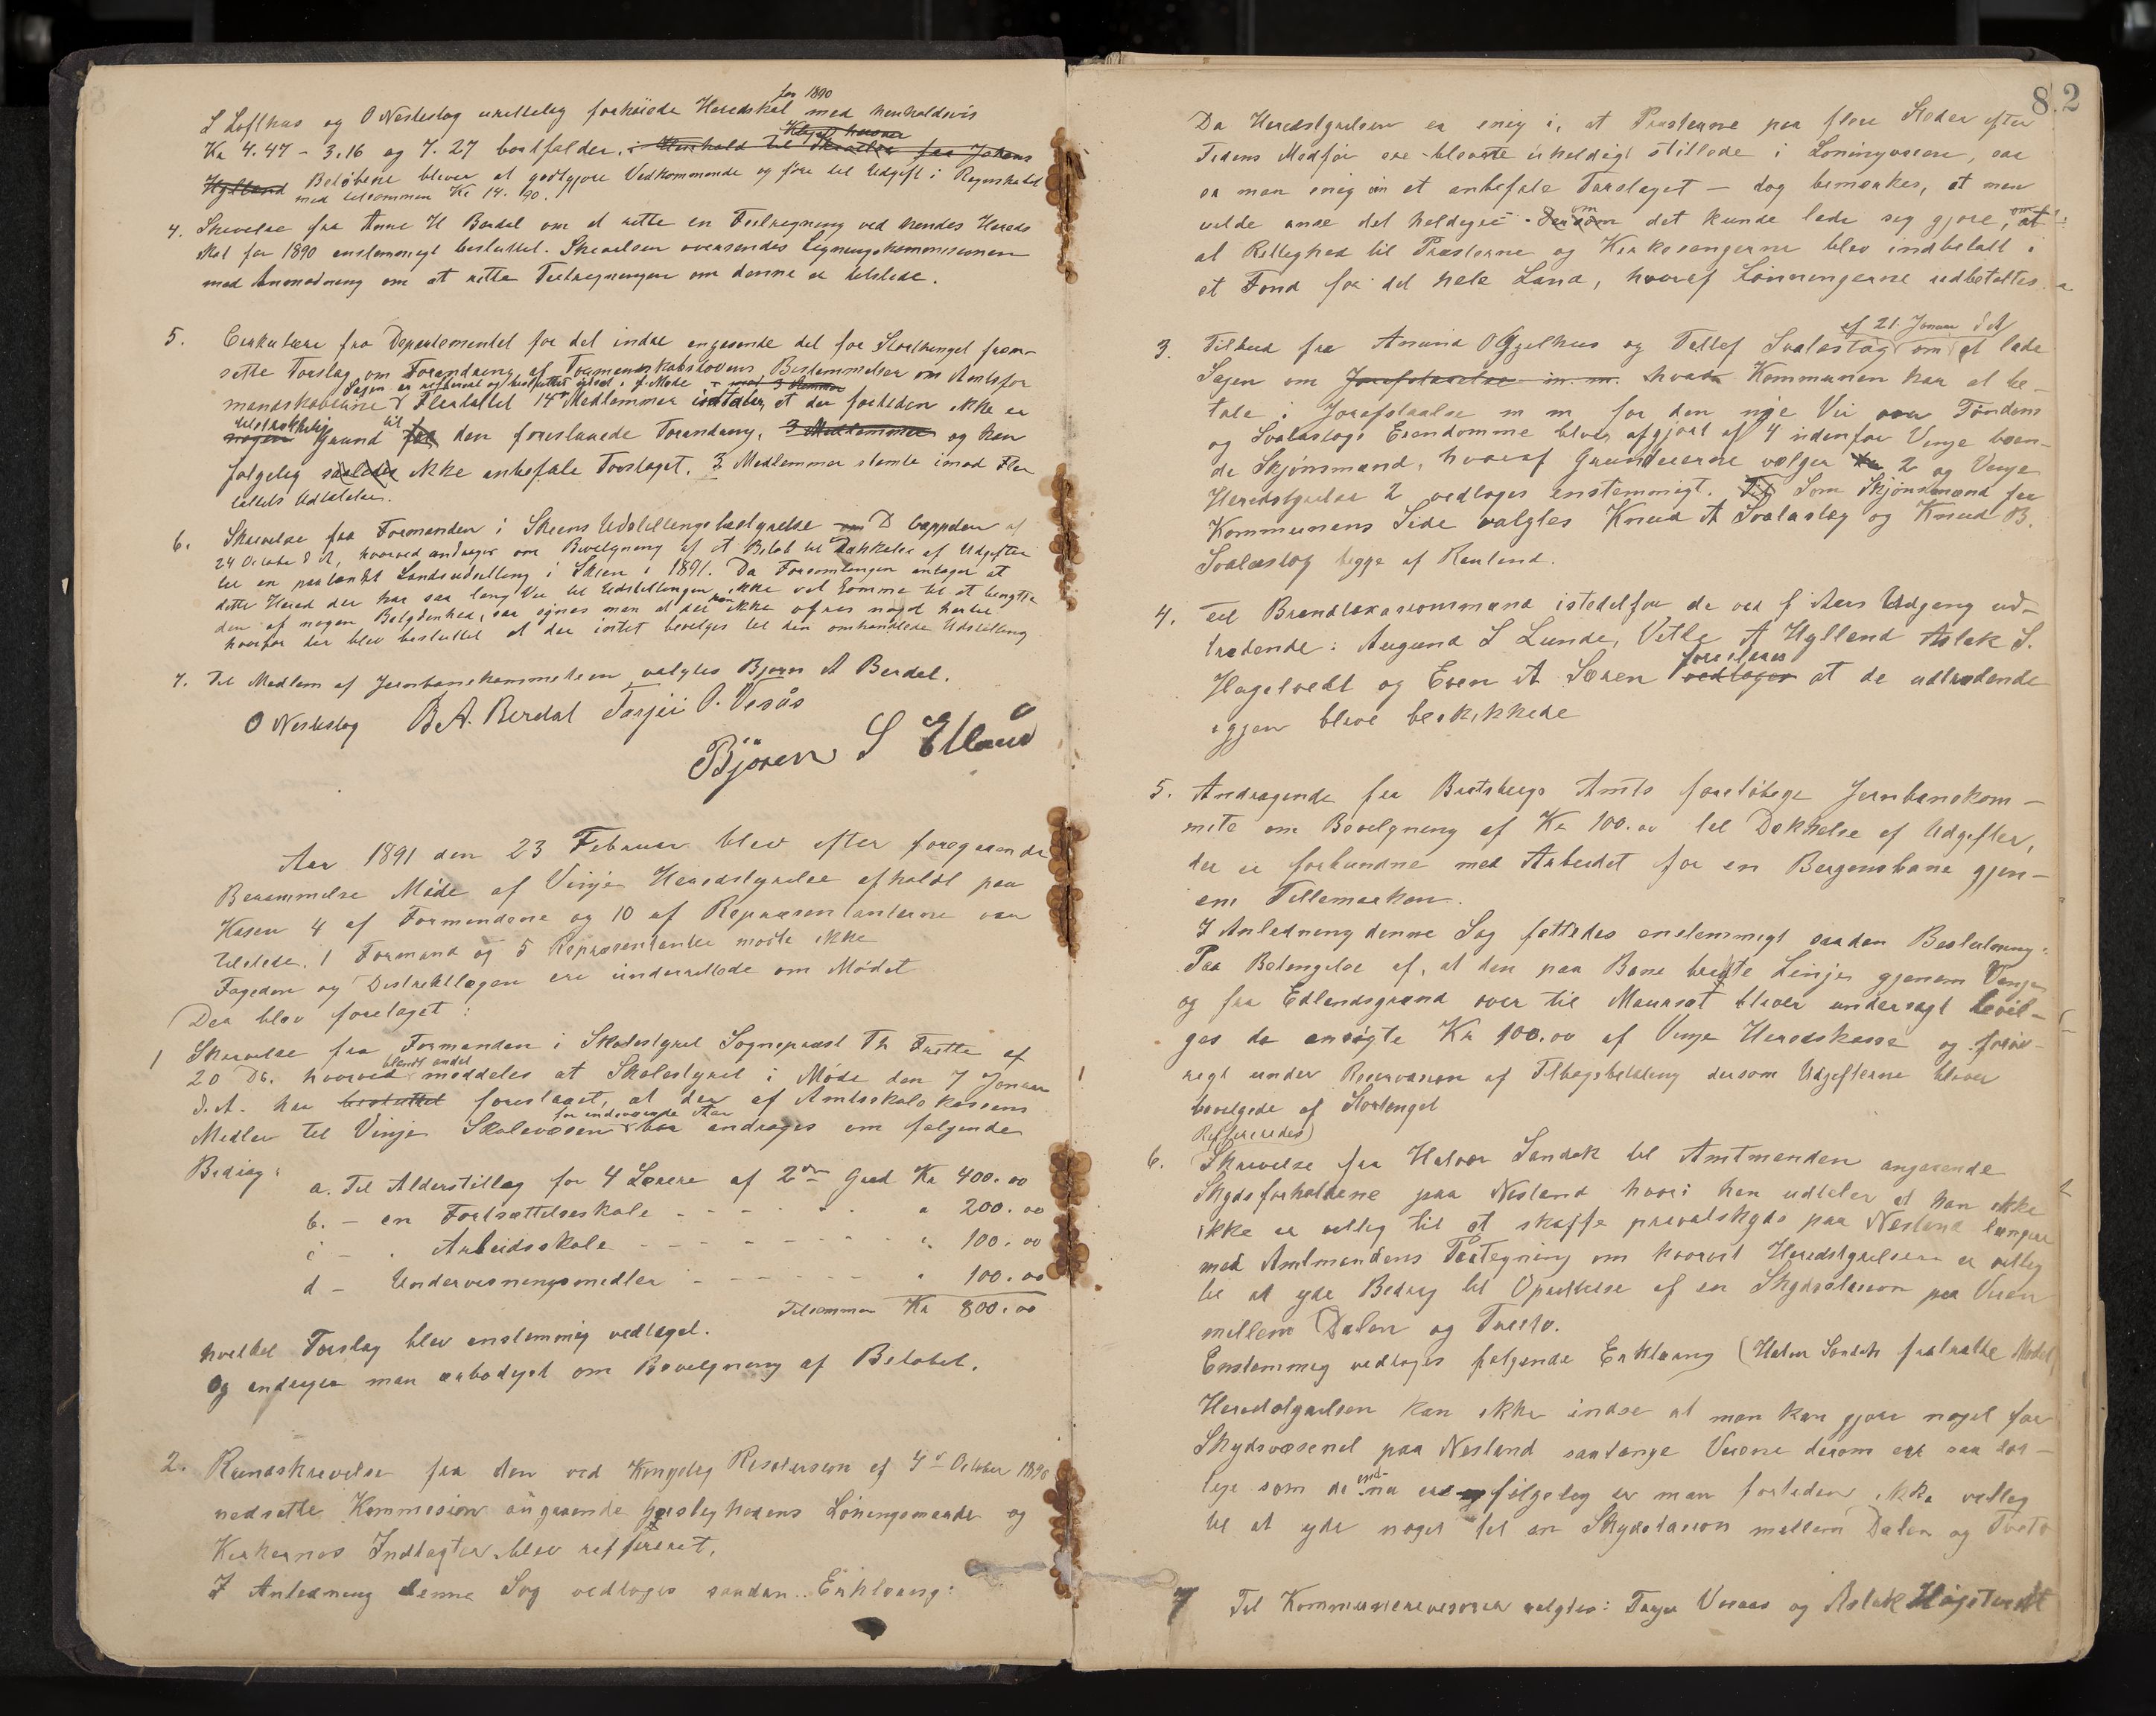 for 1890
L Lofthus og O Nesteslog urettelig forhøiede Heredskat med henholdsvis
Kr 4.47 - 3.16 og 7.27 bortfalder. i Henhold til Skrivelse fra Johans
Hylland Beløbene bliver at godtgjøre Vedkommende og føre til Udgift i Regnskabet
med tilsammen Kr 14.90.
4. Skrivelse fra Anne H Berdal om at rette en Feilregning ved hendes Hereds
skat for 1890 enstemmigt besluttet. Skrivelsen oversendes Ligningskommissionen
med Anmodning om at rette Feilregningen om denne er tilstede.
5. Cirkulære fra Departementet for det indre angaaende det for Storthinget frem-
satte Forslag om Forandring af Formandskabslovens Bestemmelser om Amtsfor
mandskaberne. Sagen er refereret og besluttet udsat i f. Møde Flertallet 14 Medlemmer udtaler, at der forteden ikke er
tilstrækkelig Grund til den foreslaaede Forandring, 3 Medlemmer og kan
følgelig saaledes ikke anbefale Forslaget. 3 Medlemmer stemte imod Fler
tallets Udtalelse.
6. Skrivelse fra Formanden i Skiens Udstillingsbestyrelse D Cappelen af
24 Octobe d A, hvorved andrages om Bevilgning af et Beløb til Dækkelse af Udgifter
til en paatænkt Landsudstilling i Skien i 1891. Da Forsamlingen antager at
dette Hered der har saa lang Vei til Udstillingen, ikke vil komme til at benytte
den af nogen Betydenhed, saa synes man at der kan ikke ofres noget hertil
hvorfor der blev besluttet at der intet bevilges til den omhandlede Udstilling
7. Til Medlem af Jernbanekommiteen valgtes Bjørn A Berdal.
O Nesteslog B A. Berdal Tarjei O. Vesås
Bjøren S Etland
Aar 1891 den 23 Februar blev efter foregaaende
Berammelse Møde af Vinje Heredstyrelse afholdt paa
Kasen 4 af Formændene og 10 af Repræsentanterne var
tilstede. 1 Formand og 5 Repræsentanter mødte ikke
Fogeden og Distriktlægen ere underrettede om Mødet
Der blev foretaget:
1 Skrivelse fra Formanden i Skolestyret Sogneprest Th Frette af
20 Ds. hvorved blandt andet meddeles at Skolestyret i Møde den 7 Januar
d.A. har besluttet foreslaaet, at der af Amtsskolekassens
Midler til Vinje Skolevæsen for indeværende Aar bør andrages om følgende
Bidrag:
a. Til Alderstillæg for 4 Lærere af 2den Grad Kr 400.00
b. - en Fortsættelseskole - - - - " 200.00
c - " Arbeidsskole - - - - - - - " 100.00
d - Undervisningsmidler - - - - - " 100.00
Tilsammen Kr 800.00
hvilket Forslag blev enstemmig vedtaget.
Og andrager man ærbødigst om Bevilgning af Beløbet.
2. Rundskrivelse fra den ved Kongelig Resolusion af 4de October 1890
nedsatte Kommission angaaende Geistlighedens Lønningsmaade og
Kirkernes Indtægter blev refereret.
I Anledning denne Sag vedtoges saadan Erklæring:
82
Da Heredstyrelsen er enig i, at Præsterne paa flere Steder efter
Tidens Medfør ere blevne uheldigt stillede i Lønningsveien, saa
er man enig i at anbefale Forslaget - dog bemærkes, at man
vilde anse det heldigst - om det kunde lade sig gjøre, at
al Rettighed til Præsterne og Kirkesangerne blev indbetalt i
et Fond for det hele Land, hvoraf Lønningerne udbetaltes.
3. Tilbud fra Amund O Gjelhus og Tellef Svalastog af 21. Januar d A om at lade
Sagen om Jordafstaaelse m. m. hvad Kommunen har at be-
tale i Jordafstaalse m m for den nye Vei over Tøndens
og Svalastogs Eiendomme blive afgjort af 4 udenfor Vinje boen-
de Skjønsmænd, hvoraf Grundeierne vælger 2 og Vinje
Heredstyrelse 2 vedtoges enstemmigt. Som Skjønsmænd fra
Kommunens Side valgtes Knud A Svalastog og Knud B.
Svalastog begge af Rauland.
4. Til Brandtaxasionsmænd istedetfor de ved f Aars Udgang ud-
trædende: Augund S Lunde, Vetle A Hylland Aslak S.
Hagetveit og Even A Særen foreslaaes vedtoges at de udtrædende
igjen blive beskikkede
5. Andragende fra Bratsbergs Amts foreløbige Jernbanekom-
mite om Bevilgning af Kr 100.00 til Dækkelse af Udgifter,
der er forbundne med Arbeidet for en Bergensbane gjen-
em Tellemarken.
I Anledning denne Sag fattedes enstemmigt saadan Beslutning:
Paa Betingelse af, at den paa Bane bragte Linje gjenem Vinje
og fra Edlandsgrænd over til Maursæt bliver undersøgt bevil-
ges de ansøgte Kr 100.00 af Vinje Heredskasse og forøv-
rigt under Reservasion af Tilbagebetaling dersom Udgifterne bliver
bevilgede af Stortinget
Reffereredes)
6. Skrivelse fra Halvor Sandok til Amtmanden angaaende
Skydsforholdene paa Nesland hvori han udtaler at han ikke
ikke er villig til at skaffe privatskyds paa Nesland længere
med Amtmandens Paategning om hvorvit Heredstyrelsen er villig
til at yde Bidrag til Oprettelse af en Skydsstasion paa Veien
mellem Dalen og Tveito.
Enstemmig vedtoges følgende Erklæring (Halvor Sandok fratraadte Mødet)
Heredstyrelsen kan ikke indse at man kan gjøre noget for
Skydsvæsenet paa Nesland saalænge Veiene derom er saa dar-
lige som de end-nu ere følgelig er man forteden ikke villig
til at yde noget til en Skydsstasion mellem Dalen og Tveito
7 Til Kommunerevisorer valgtes: Tarjei Vesaas og Aslak Hagetveit